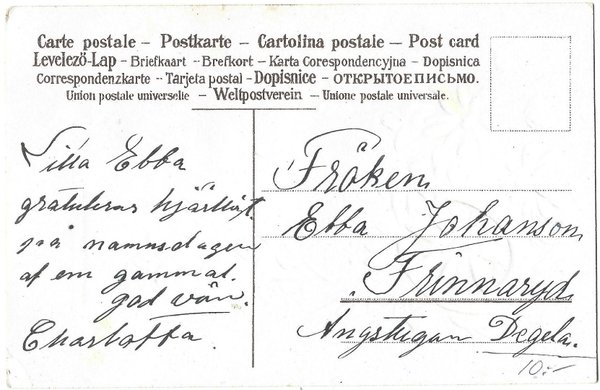 Carte postale – Postkarte – Cartolina postale – Post card
Levelező-Lap – Briefkaart – Brefkort – Karta Corespondencyjna – Dopisnica
Correspondenzkarte – Tarjeta postal – Dopisnice – ОТКРЫТОЕПИСЬМО.
Union postale universelle – Weltpostverein – Unione postale universale.
Lilla Ebba
gratuleras hjärtligt
på namnsdagen
af en gammal
god vän.
Charlotta.
Fröken
Ebba Johanson
Frinnaryd
Angstugan Degla.
10:-